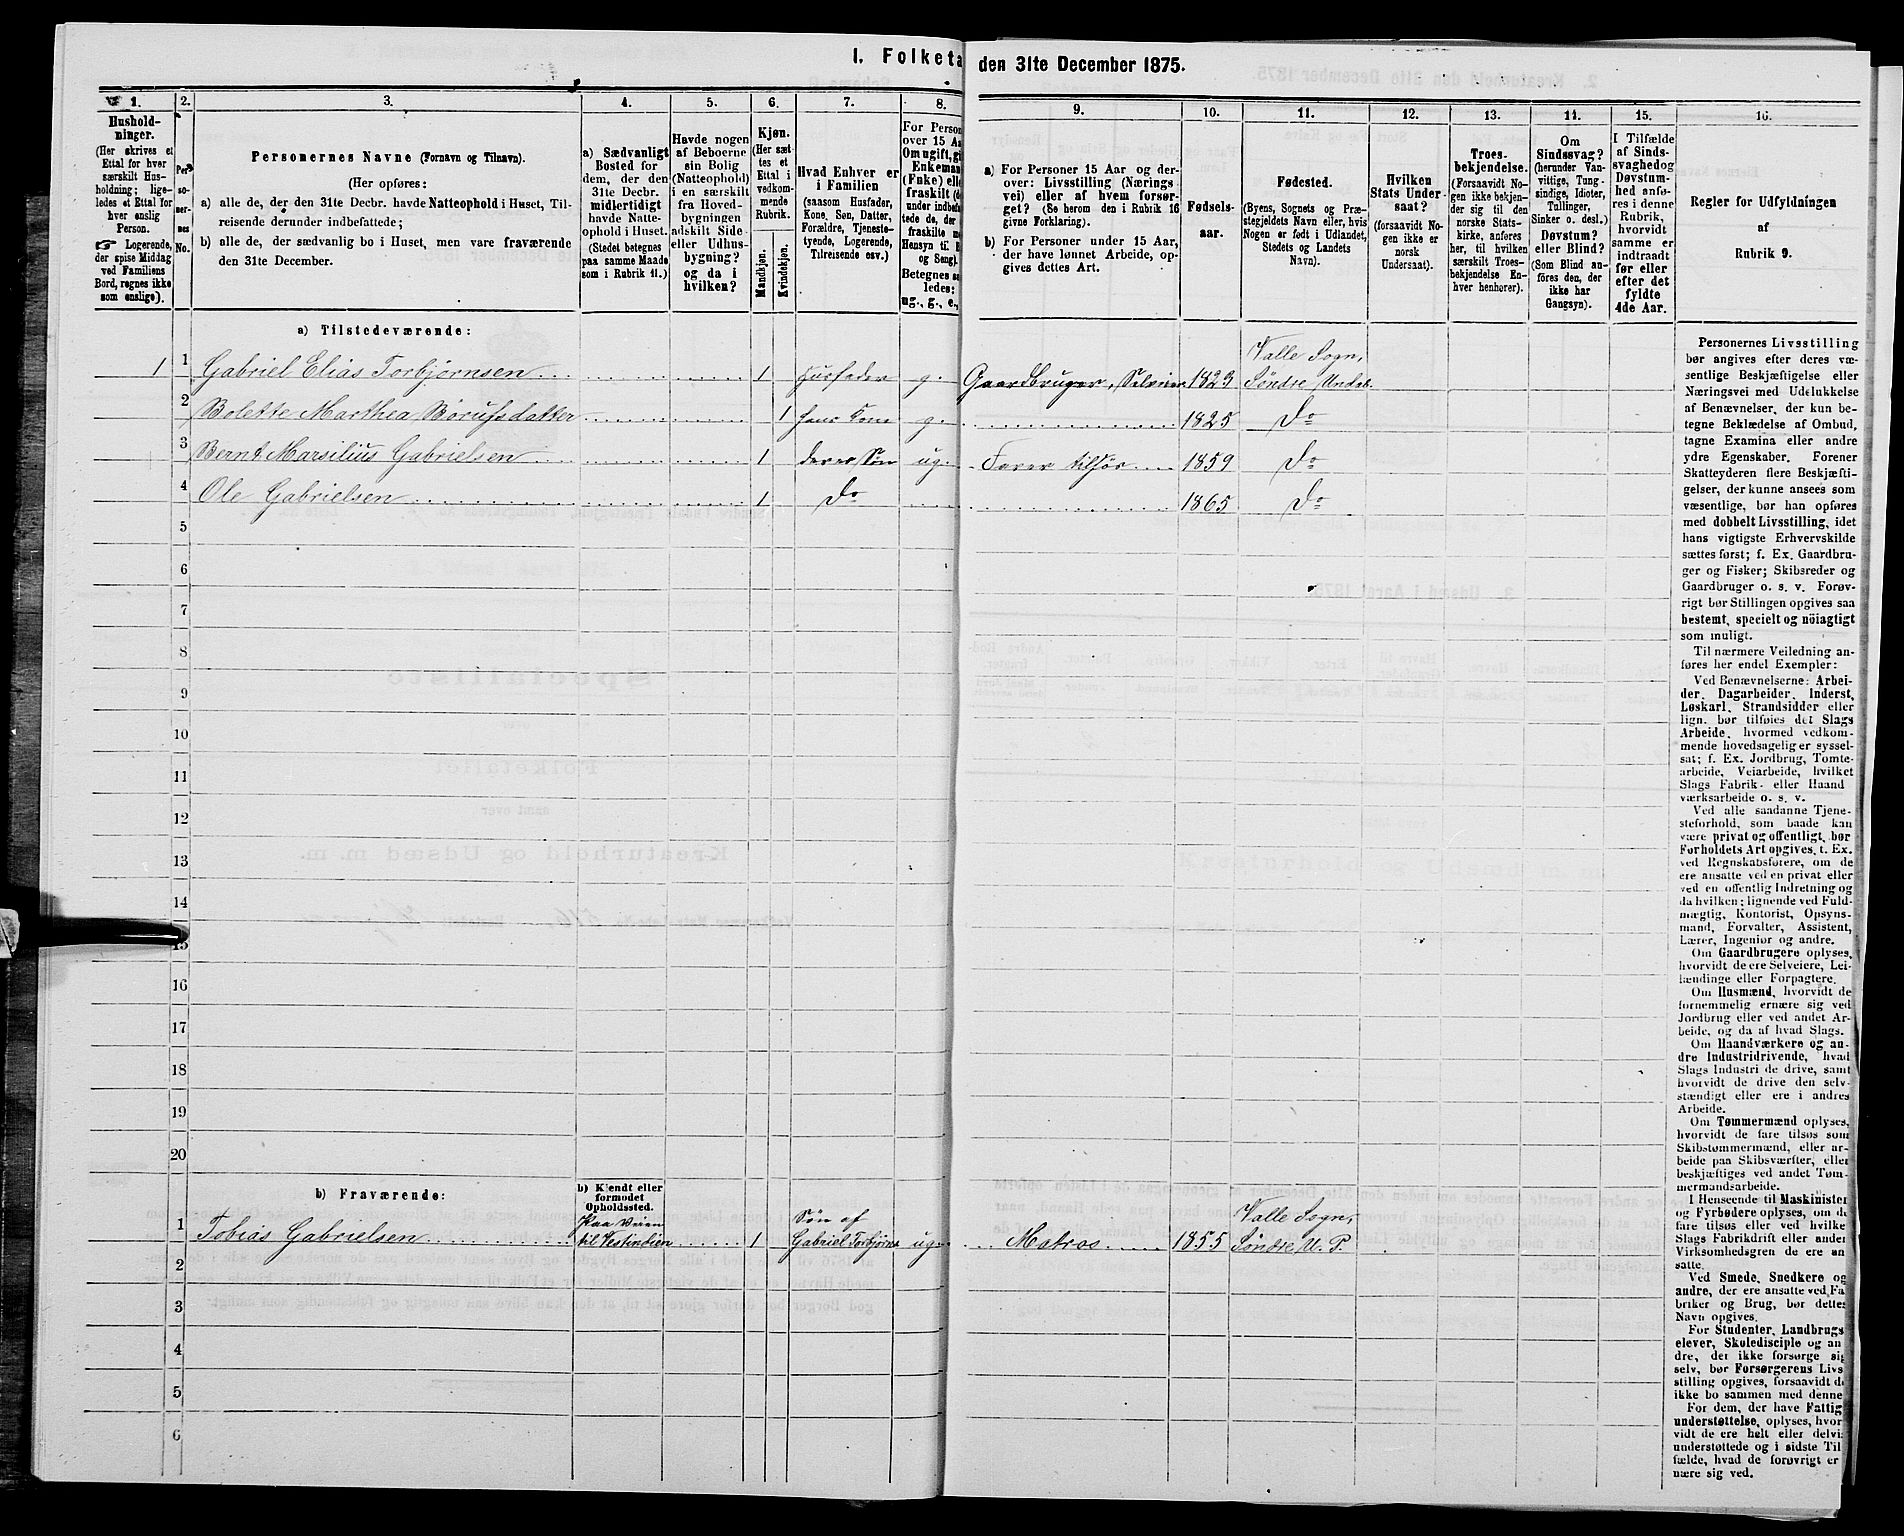 I. Folketa
den 31te December 1875.
1.
2.
3.
4.
5.
6.
7.
8.
9.
10.
11.
12.
13.
14.
15.
16.
Hushold-
ninger.
(Her skrives et
Ettal for hver
særskilt Hus-
holdning; lige-
ledes et Ettal for
hver enslig
Person.
☞ Logerende,
der spise Middag
ved Familiens
Bord, regnes ikke
som enslige).
Per-
so-
ner-
nes
No.
Personernes Navne (Fornavn og Tilnavn).
(Her opføres:
a) alle de, der den 31te Decbr. havde Natteophold i Huset, Til-
reisende derunder indbefattede;
b) alle de, der sædvanlig bo i Huset, men vare fraværende
den 31te December.
a) Sædvanligt
Bosted for
dem, der den
31te Decbr.
midlertidigt
havde Natte-
ophold i Huset.
(Stedet betegnes
paa samme Maade
som i Rubrik 11.)
Havde nogen
af Beboerne
sin Bolig
(Natteophold)
i en særskilt
fra Hoved-
bygningen
adskilt Side-
eller Udhus-
bygning?
og da i
hvilken?
Kjøn.
(Her sæt-
tes et
Ettal i
vedkom-
mende
Rubrik.
Mandkjøn.
Kvindekjøn.
Hvad Enhver er
i Familien
(saasom Husfader,
Kone, Søn, Datter,
Forældre, Tjeneste-
tyende, Logerende,
Tilreisende osv.)
For Person
over 15 Aa
Om ugift, gi
Enkeman
(Enke) elle
fraskilt (d
under indbefat-
tede de, der e
fraskilte m
Hensyn til B
og Seng).
Betegnes sa
ledes:
ug., g., e.,
a) For Personer 15 Aar og der-
over: Livsstilling (Nærings-
vei) eller af hvem forsør-
get? (Se herom den i Rubrik 16
givne Forklaring).
b) For Personer under 15 Aar,
der have lønnet Arbeide, op-
gives dettes Art.
Fødsels-
aar.
Fødested.
(Byens, Sognets og Præ-
stegjeldets Navn eller, hvis
Nogen er født i Udlandet,
Stedets og Landets
Navn).
Hvilken
Stats Under-
saat?
(forsaavidt No-
gen ikke er
norsk
Undersaat).
Troes-
bekjendelse.
(Forsaavidt No-
gen ikke bekjen-
der sig til den
norske Stats-
kirke, anføres
her, til hvilken
særskilt Troes-
bekjendelse En-
hver henhører).
Om
Sindssvag?
(herunder Van-
vittige, Tung-
sindige, Idioter,
Tullinger,
Sinker o. desl.)
Døvstum?
eller Blind?
(Som Blind an-
føres den, der
ikke har
Gangsyn).
I Tilfælde
af Sinds-
svaghed og
Døvstum-
hed anfø-
res i denne
Rubrik,
hvorvidt
samme er
indtraadt
før eller
efter det
fyldte
4de Aar.
Regler for Udfyldningen
af
Rubrik 9.
a) Tilstedeværende:
1 1 Gabriel Elias Torbjørnsen 1 Husfader g. Gaardbruger, Selveier 1823 Valle Sogn, Søndre Undal.
2 Bolette Marthea Børufsdatter 1 hans Kone g. 1825 Do
3 Bernt Marsilius Gabrielsen 1 deres Søn ug. Farer tilsjøs 1859 Do
4 Ole Gabrielsen 1 Do 1865 Do
5
6
7
8
9
10
11
12
13
14
15
16
17
18
19
20
b) Fraværende:
b) Kjendt eller
formodet
Opholdssted.
1 Tobias Gabrielsen Paa Veien til Vestindien 1 Søn af Gabriel Torbjørns. ug. Matros 1855 Valle Sogn, Søndre U. P.
2
3
4
5
6
Personernes Livsstilling
bør angives efter deres væ-
sentlige Beskjæftigelse eller
Næringsvei med Udelukkelse
af Benævnelser, der kun be-
tegne Beklædelse af Ombud,
tagne Examina eller andre
ydre Egenskaber. Forener
Skatteyderen flere Beskjæfti-
gelser, der kunne ansees som
væsentlige, bør han opføres
med dobbelt Livsstilling, idet
hans vigtigste Erhvervskilde
sættes først; f. Ex. Gaardbru-
ger og Fisker; Skibsreder og
Gaardbruger o. s. v. Forøv-
rigt bør Stillingen opgives saa
bestemt, specielt og nöiagtigt
som muligt.
Til nærmere Veiledning an-
føres her endel Exempler:
Ved Benævnelserne: Arbei-
der, Dagarbeider, Inderst,
Løskarl, Strandsidder eller
lign. bør tilføies det Slags
Arbeide, hvormed vedkom-
mende hovedsagelig er syssel-
sat; f. Ex. Jordbrug, Tomte-
arbeide, Veiarbeide, hvilket
Slags Fabrik- eller Haand
værksarbeide o. s. v.
Ved alle saadanne Tjene-
steforhold, som baade kan
være privat og offentligt, bør
Forholdets Art opgives, t. Ex.
ved Regnskabsførere, om de
ere ansatte ved en privat eller
ved en offentlig Indretning og
da hvilken; lignende ved Fuld-
mægtig, Kontorist, Opsyns-
mand, Forvalter, Assistent,
Lærer, Ingeniør og andre.
Om Gaardbrugere oplyses,
hvorvidt de ere Selveiere, Lei-
lændinge eller Forpagtere.
Om Husmænd, hvorvidt de
fornemmelig ernære sig ved
Jordbrug eller ved andet Ar-
beide, og da af hvad Slags.
Om Haandværkere og an-
dre Industridrivende, hvad
Slags Industri de drive, samt
hvorvidt de drive den selv-
stændigt eller ere i andres
Arbeide.
Om Tømmermænd oplyses,
hvorvidt de fare tilsøs som
Skibstømmermænd, eller ar-
beide paa Skibsværfter, eller
beskjæftiges ved andet Tøm-
mermandsarbeide.
I Henseende til Maskinister
og Fyrbødere oplyses, om de
fare tilsøs eller ved hvilke
Slags Fabrikdrift eller anden
Virksomhedsgren de ere an
satte.
Ved Smede, Snedkere og
andre, der ere ansatte ved Fa
briker og Brug, bør dettes
Navn opgives.
For Studenter, Landbrugs
elever, Skoledisciple og an
dre, der ikke forsørge sig
selv, bør Forsørgerens Livs
stilling opgives, forsaavidt de
ikke bo sammen med denne
For dem, der have Fattig
understøttelse, oplyses, hvor
vidt de ere helt eller delvi
understøttede og i sidste Til
fælde, hvad de forøvrigt er
nære sig ved.